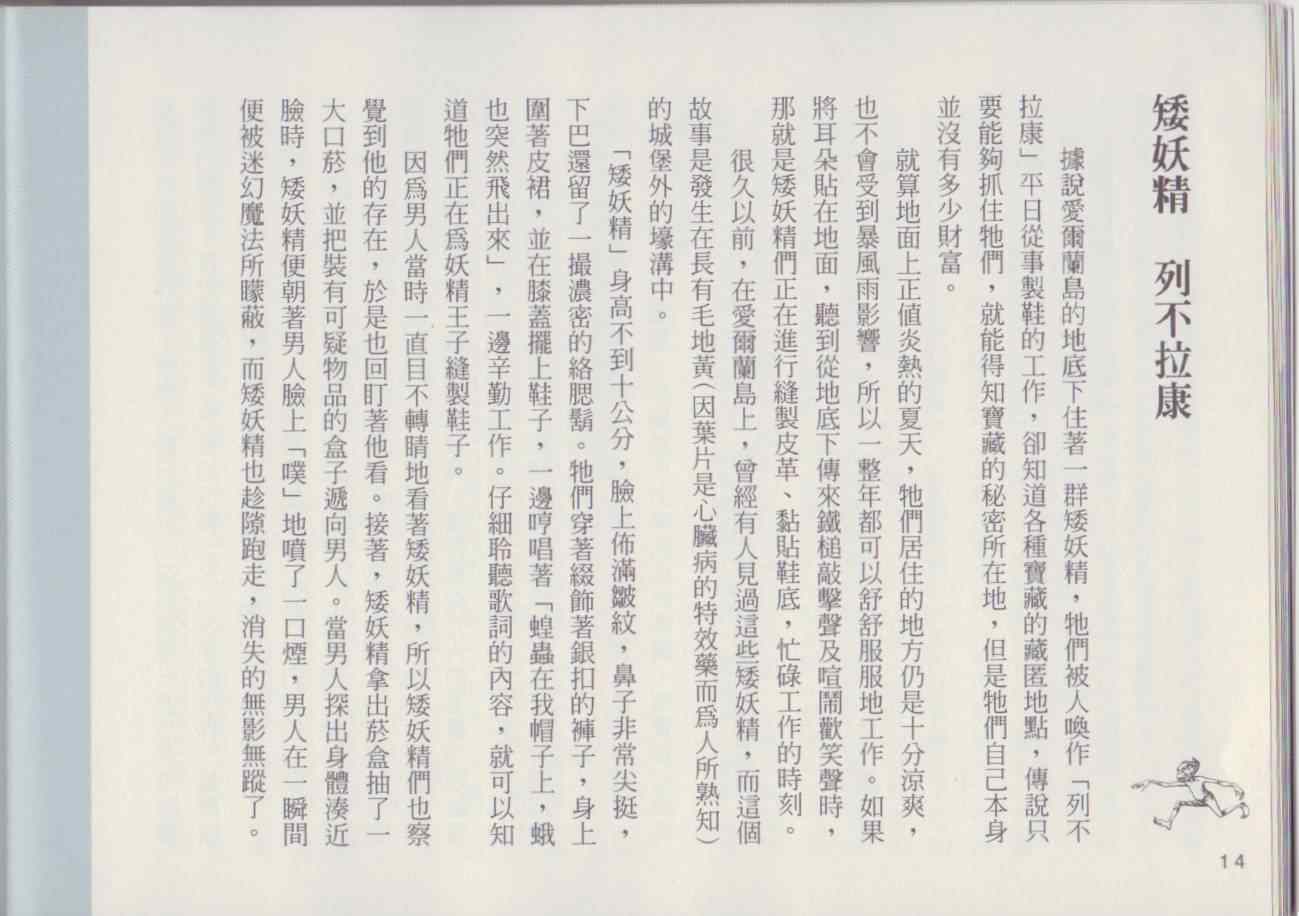 矮妖精　列不拉康
據說愛爾蘭島的地底下住著一群矮妖精，牠們被人喚作「列不
拉康」平日從事製鞋的工作，卻知道各種寶藏的藏匿地點，傳說只
要能夠抓住牠們，就能得知寶藏的秘密所在地，但是牠們自己本身
並沒有多少財富。
就算地面上正值炎熱的夏天，牠們居住的地方仍是十分涼爽，
也不會受到暴風雨影響，所以一整年都可以舒舒服服地工作。如果
將耳朵貼在地面，聽到從地底下傳來鐵槌敲擊聲及喧鬧歡笑聲時，
那就是矮妖精們正在進行縫製皮革、黏貼鞋底，忙碌工作的時刻。
很久以前，在愛爾蘭島上，曾經有人見過這些矮妖精，而這個
故事是發生在長有毛地黃（因葉片是心臟病的特效藥而爲人所熟知）
的城堡外的壕溝中。
「矮妖精」身高不到十公分，臉上佈滿皺紋，鼻子非常尖挺，
下巴還留了一撮濃密的絡腮鬍。牠們穿著綴飾著銀扣的褲子，身上
圍著皮裙，並在膝蓋擺上鞋子，一邊哼唱著「蝗蟲在我帽子上，蛾
也突然飛出來」，一邊辛勤工作。仔細聆聽歌詞的內容，就可以知
道牠們正在爲妖精王子縫製鞋子。
因爲男人當時一直目不轉睛地看著矮妖精，所以矮妖精們也察
覺到他的存在，於是也回盯著他看。接著，矮妖精拿出菸盒抽了一
大口菸，並把裝有可疑物品的盒子遞向男人。當男人探出身體湊近
臉時，矮妖精便朝著男人臉上「噗」地噴了一口煙，男人在一瞬間
便被迷幻魔法所矇蔽，而矮妖精也趁隙跑走，消失的無影無蹤了。
14